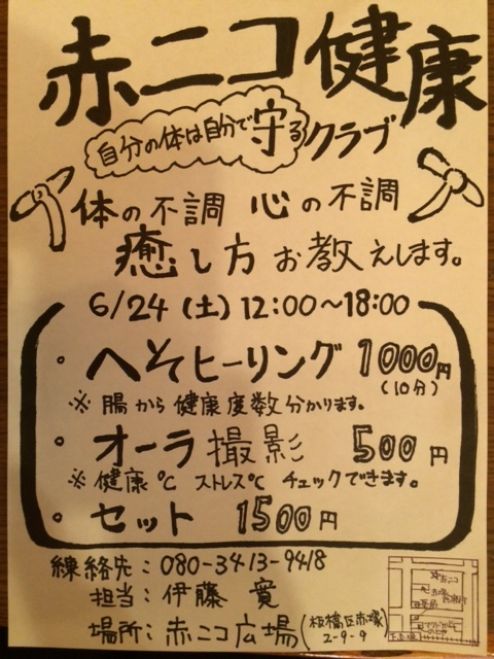 赤ニコ健康
自分の体は自分で守る
クラブ
体の不調 心の不調
癒し方お教えします。
6/24(土)12:00〜18:00
・へそヒーリング 1000円
(10分)
※腸から健康度数分かります。
・オーラ撮影 500円
※健康℃ ストレス℃ チェックできます。
・セット 1500円
練絡先:080-3413-9418
担当:伊藤 寛
場所:赤ニコ広場(板橋区赤塚
2-9-9
赤ニコ